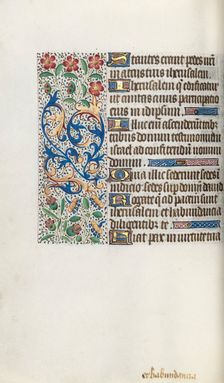 Stantes erant pedes nri
in atriis tuis iherusalem
Iherusalem q̄ edificatur
ut civitas cuius participatio
eius in idipsum
Illuc enim ascenderūt tribus
tribus domini testimonium
israel ad confitendū nomini
domini
Quia illuc sederunt sedes
iudicio sedes sup domū david
Rogate q̄ ad pacem sunt
iherusalem et habundancia
diligentibus te
Fiat pax in virtute tua
et habundancia